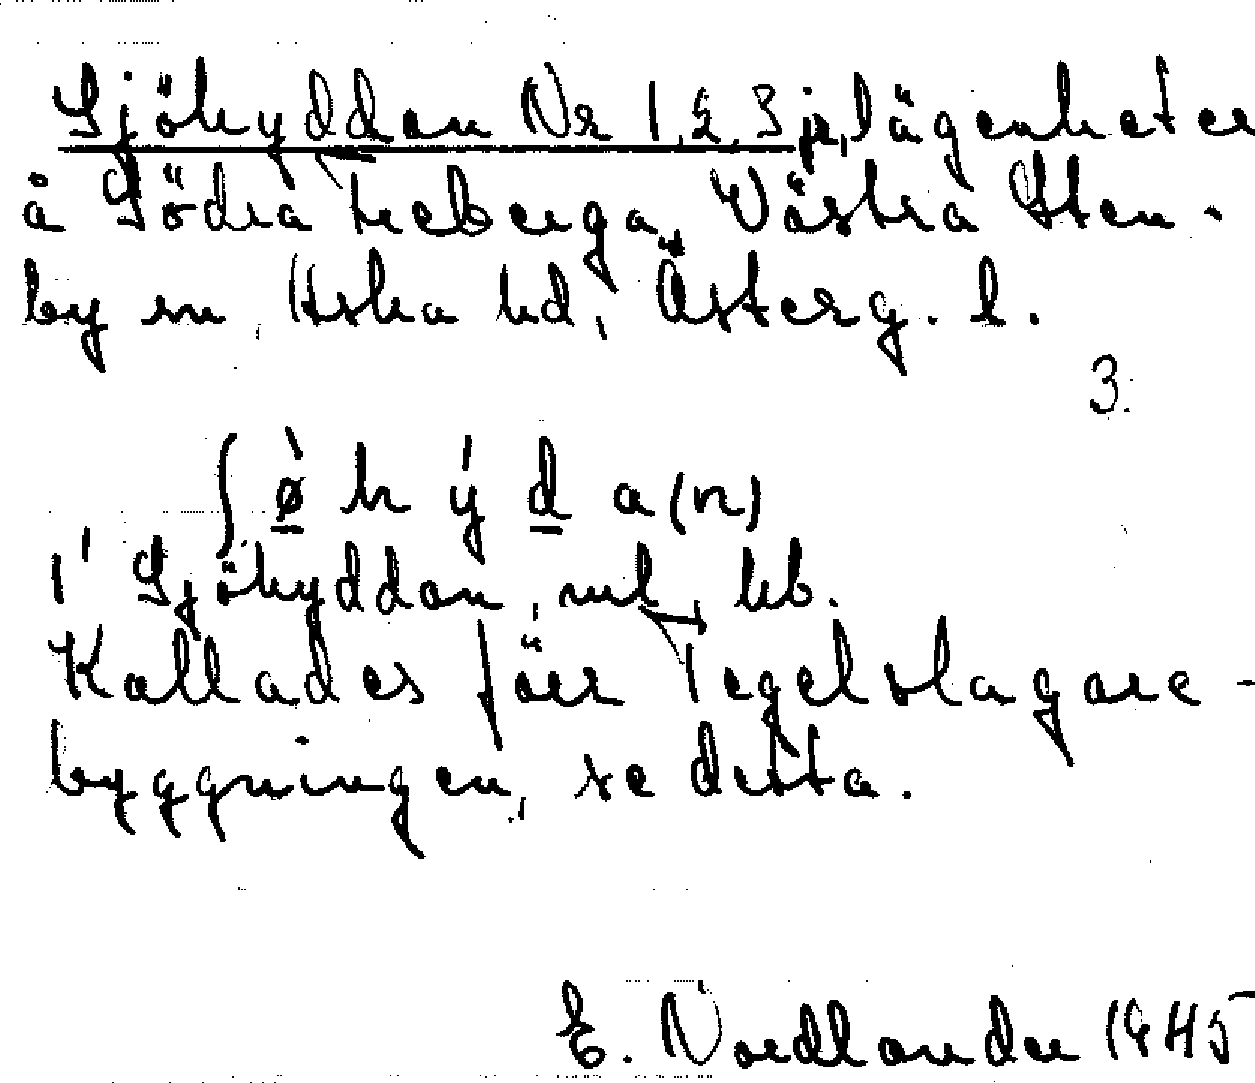 Sjöhyddan Nr 1, 2, 3 jr, lägenheter
å Södra Freberga, Västra Sten-
by sn, Aska hd, Österg. l.
3.
ʃø̀hýda(n)
1' Sjöhyddan, ml, kb.
Kallades förr Tegelslagare-
byggningen, se detta.
E. Nordlander 1945